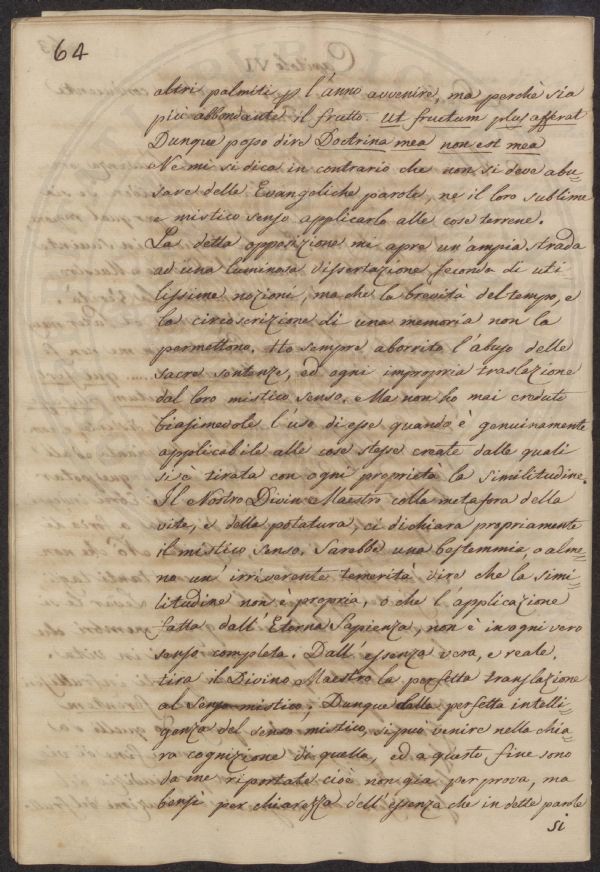 64
altri palmiti p l'anno avvenire, ma perchè sia
più abbondante il frutto. Ut fructum plus afferat
Dunque posso dire Doctrina mea non est mea
Ne mi si dica in contrario che non si deve abu=
sare delle Evangeliche parole, ne il loro sublime
e mistico senso applicarlo alle cose terrene.
La detta opposizione mi apre un'ampia strada
ad una luminosa dissertazione feconda di uti
lissime nozioni, ma che la brevità del tempo, e
la circoscrizione di una memoria non la
permettono. Ho sempre aborrito l'abuso delle
sacre sentenze, ed ogni impropria traslazione
dal loro mistico senso. Ma non ho mai creduto
biasimevole l'uso di esse quando è genuinamente
applicabile alle cose stesse create dalle quali
si è tirata con ogni proprietà la similitudine.
Il Nostro Divin Maestro colla metafora della
vite, e della potatura, ci dichiara propriamente
il mistico senso. Sarebbe una bestemmia, o alme=
no un' irriverente temerità dire che la simi=
litudine non è propria, o che l'applicazione
fatta dall'Eterna Sapienza, non è in ogni vero
senso completa. Dall'essenza vera, e reale
tira il Divino Maestro la perfetta translazione
al senso mistico; Dunque dalla perfetta intelli=
genza del senso mistico, si può venire nella chia=
ra cognizione di quella, ed a questo fine sono
da me riportate cioè non già per prova, ma
bensì per chiarezza dell'essenza che in dette parole
si